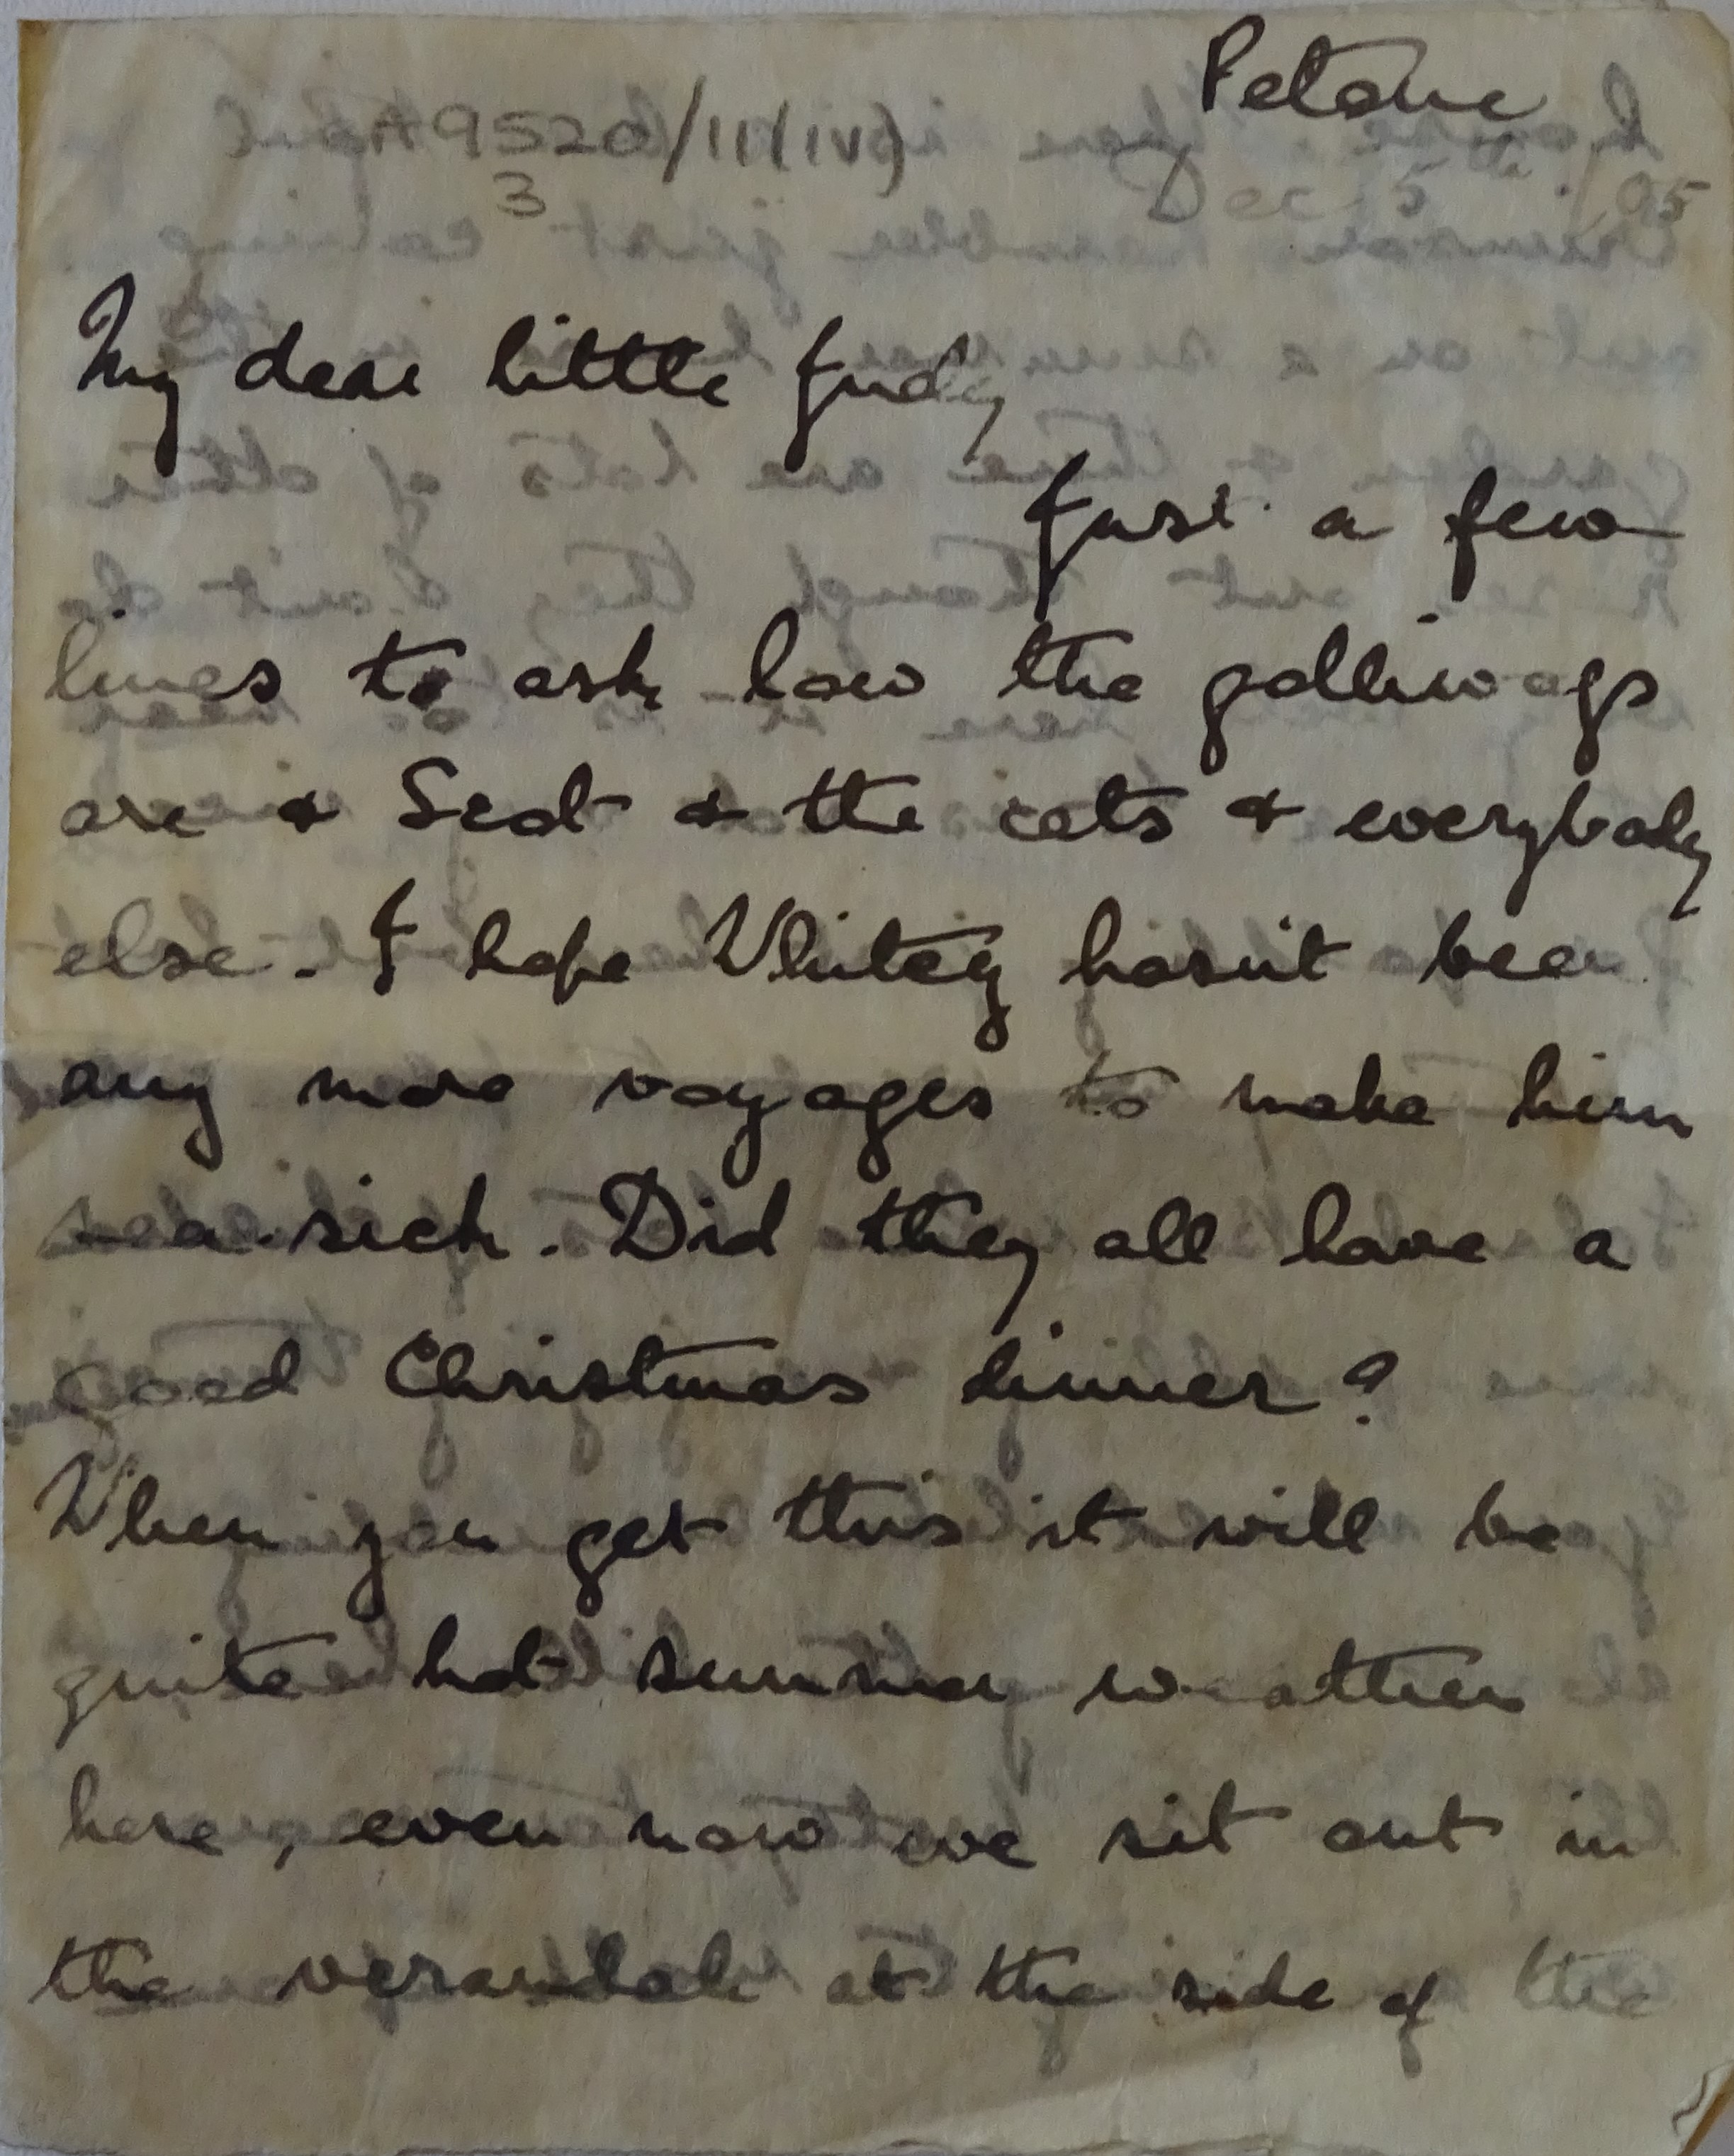 Petone
A9520/III(IV)
3
Dec 5th /05
My dear little Judy
Just a few
lines to ask how the golliwogs
are & & the cats & everybody
else. I hope Whitey hasn't been
any more voyages to make him
sea-sick. Did they all have a
good Christmas dinner?
When you get this it will be
quite hot summer weather
here, even now we sit out in
the verandah at the side of the